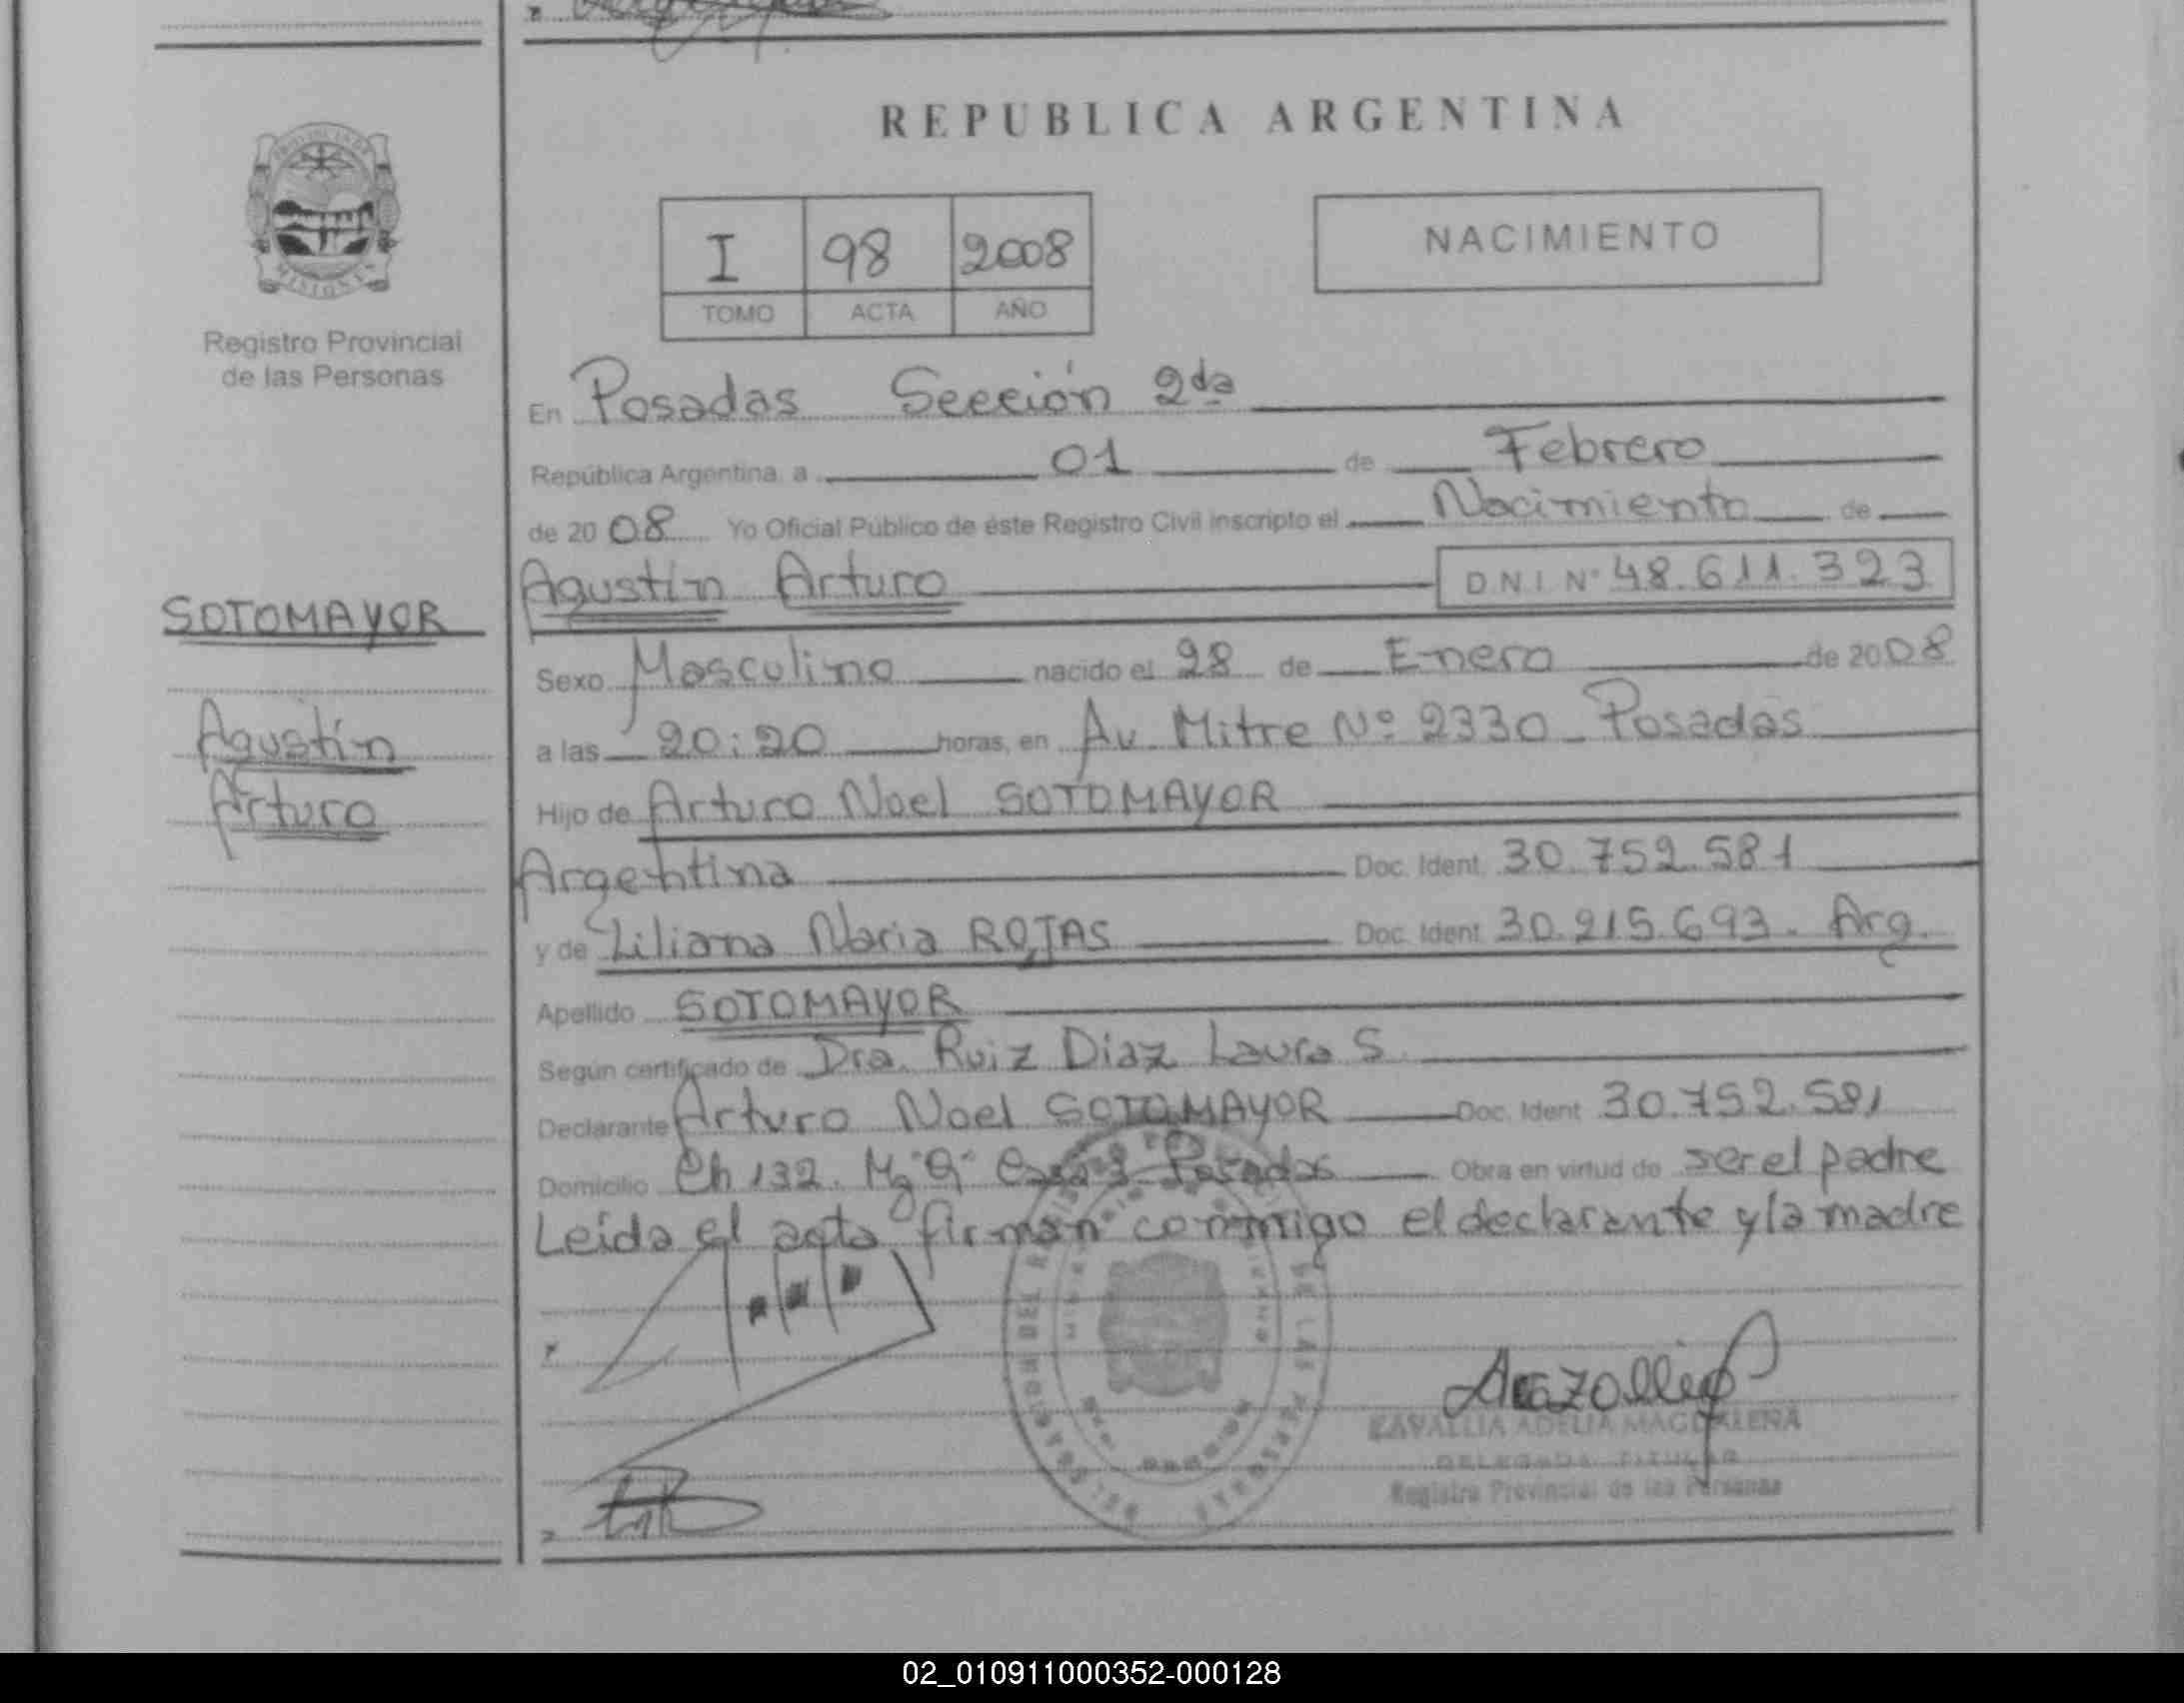 REPUBLICA ARGENTINA
I 98 2008
TOMO ACTA AÑO
NACIMIENTO
MISIONES
Registro Provincial
de las Personas
SOTOMAYOR
Agustín
Arturo
En Posadas Sección 2da
República Argentina, a 01 de Febrero
de 2008 Yo Oficial Público de éste Registro Civil inscripto el Nacimiento de
Agustín Arturo D.N.I. Nº 48.611.323
Sexo Masculino nacido el 28 de Enero de 2008
a las 20:20 horas, en Av. Mitre Nº 2330 - Posadas
Hijo de Arturo Noel SOTOMAYOR
Argentina Doc. Ident. 30.752.581
y de Liliana Maria ROJAS Doc. Ident. 30.215.693. Arg.
Apellido SOTOMAYOR
Según certificado de Dra. Ruiz Diaz Laura S.
Declarante Arturo Noel SOTOMAYOR Doc. Ident. 30.752.581
Domicilio Ch 132. Mz Posadas Obra en virtud de ser el padre
Leída el acta firman conmigo el declarante y la madre
ZAVALLIA ADELIA MAGDALENA
DELEGADA TITULAR
Registro Provincial de las Personas
02_010911000352-000128